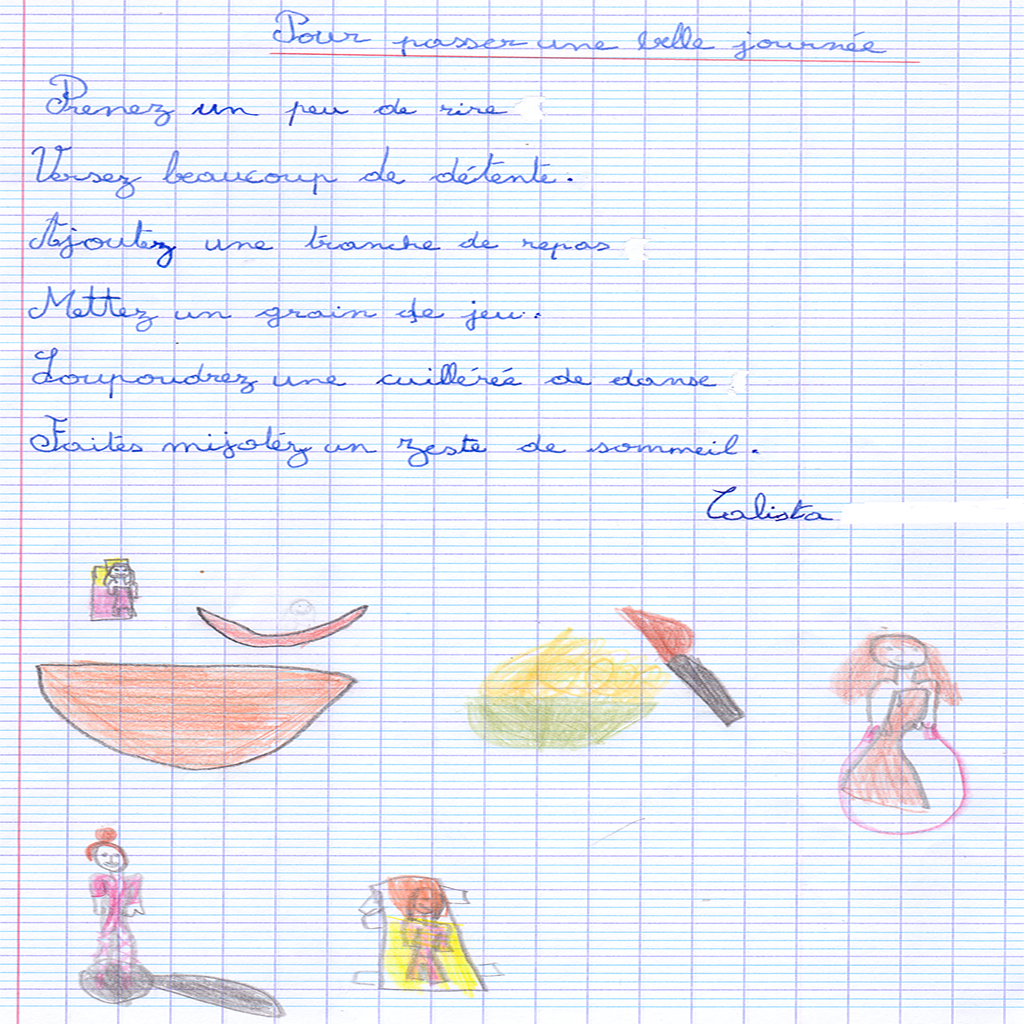 Pour passer une belle journée
Prenez un peu de rire
Versez beaucoup de détente.
Ajoutez une tranche de repas
Mettez un grain de jeu.
Soupoudrez une cuilléréé de danse
Faites mijotéz un zeste de sommeil.
Calista